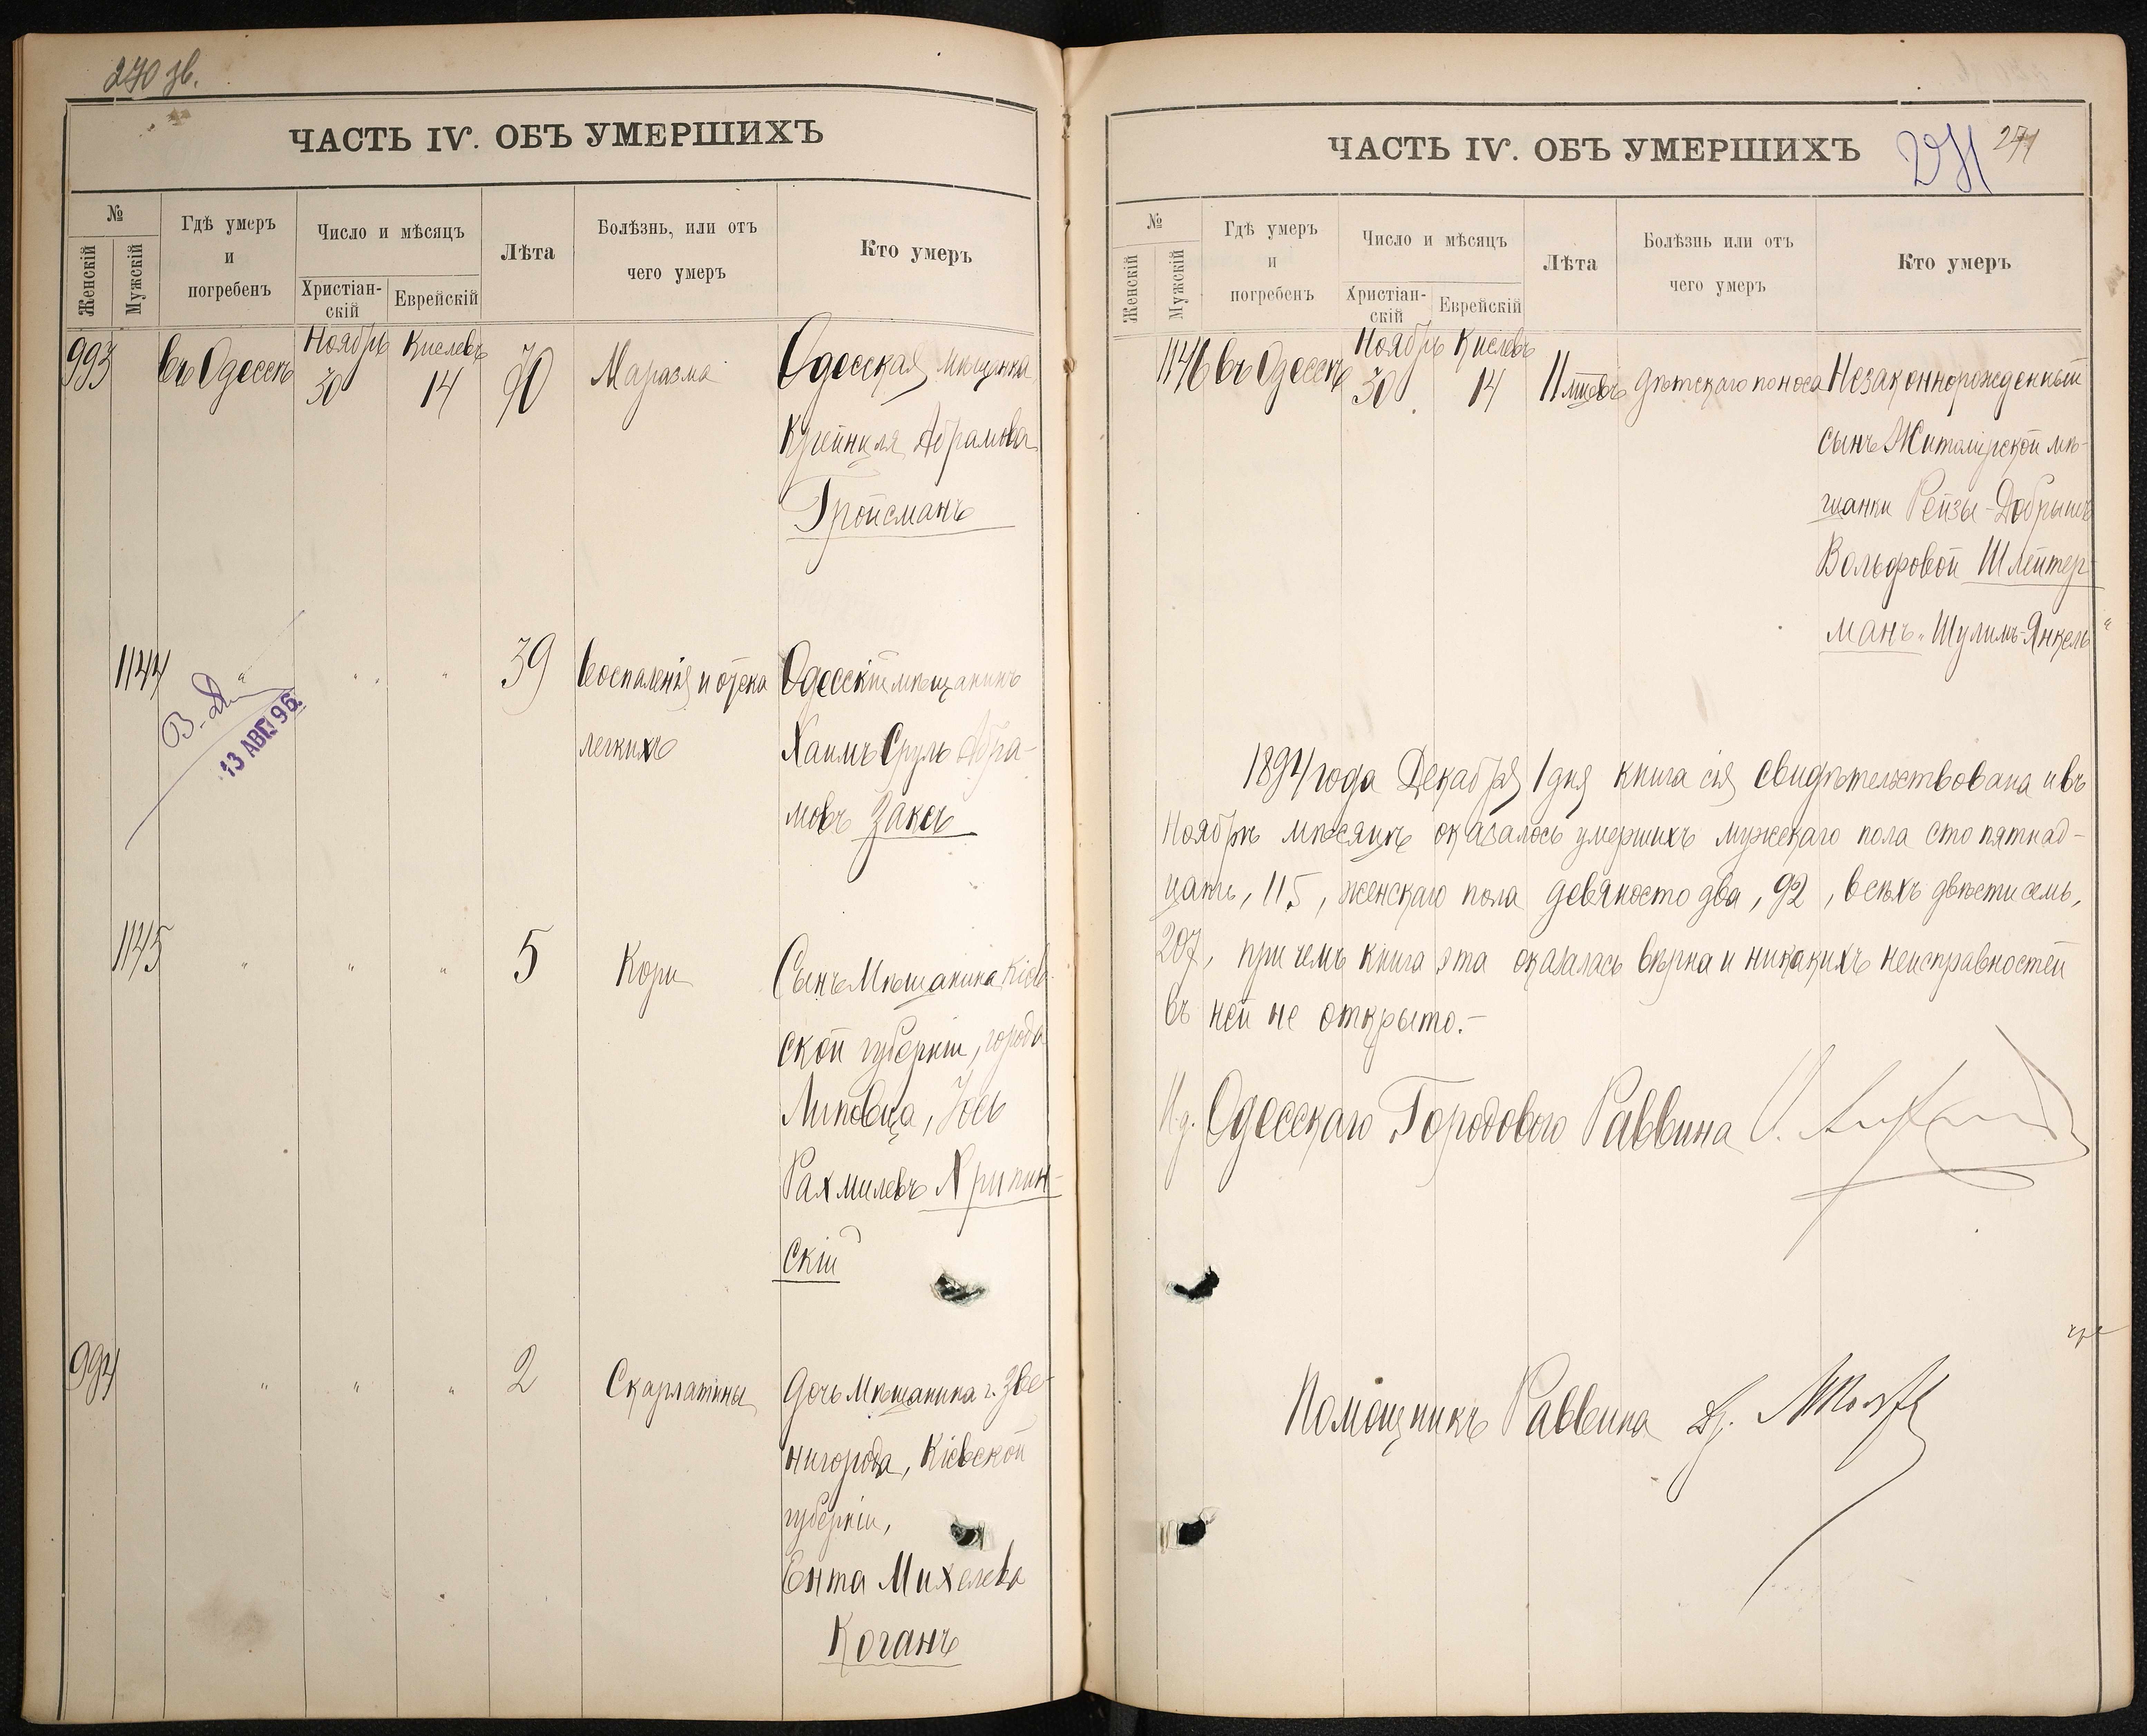 270 зв.
ЧАСТЬ IV. ОБЪ УМЕРШИХЪ
№
Женскій
Мужскій
Гдѣ умеръ
и
погребенъ
Число и мѣсяцъ
Христіан-
скій
Еврейскій
Лѣта
Болѣзнь, или отъ
чего умеръ
Кто умеръ
Ноябрь Кислевъ
993 въ Одессѣ 30 14 70 Маразма Одесская мѣщанка
Крейнцля Абрамова
Гройсманъ
1144 " " " 39 Воспаленія и отека Одесскій мѣщанинъ
легкихъ Хаимъ Сруль Абра-
мовъ Заксъ
13 АВГ. 96.
1145 " " " 5 Кори Сынъ Мѣщанина Кіев-
ской губерніи, города
Липовца, Іось
Рахмилевъ Хрипин-
скій
994 " " " 2 Скарлатины Дочь Мѣщанина г. Зве-
нигорода, Кіевской
губерніи,
Ента Михелева
Коганъ
ЧАСТЬ IV. ОБЪ УМЕРШИХЪ
271 271
№
Женскій
Мужскій
Гдѣ умеръ
и
погребенъ
Число и мѣсяцъ
Христіан-
скій
Еврейскій
Лѣта
Болѣзнь или отъ
чего умеръ
Кто умеръ
Ноябрь Кислевъ
1146 въ Одессѣ 30 14 11 мѣсевъ дѣтскаго поноса Незаконнорожденный
сынъ Житомірской мѣ-
щанки Рейзы-Добрышъ
Вольфовой Шлейтер-
манъ „Шулимъ-Янкель"
1894 года Декабря 1 дня книга сія свидѣтельствована и въ
Ноябрѣ мѣсяцѣ оказалось умершихъ мужскаго пола сто пятнад-
цать, 115, женскаго пола девяносто два, 92, всѣхъ двѣсти семь,
207, при чемъ книга эта оказалась вѣрна и никакихъ неисправностей
въ ней не открыто.-
И.д. Одесскаго Городового Раввина
Помощникъ Раввина